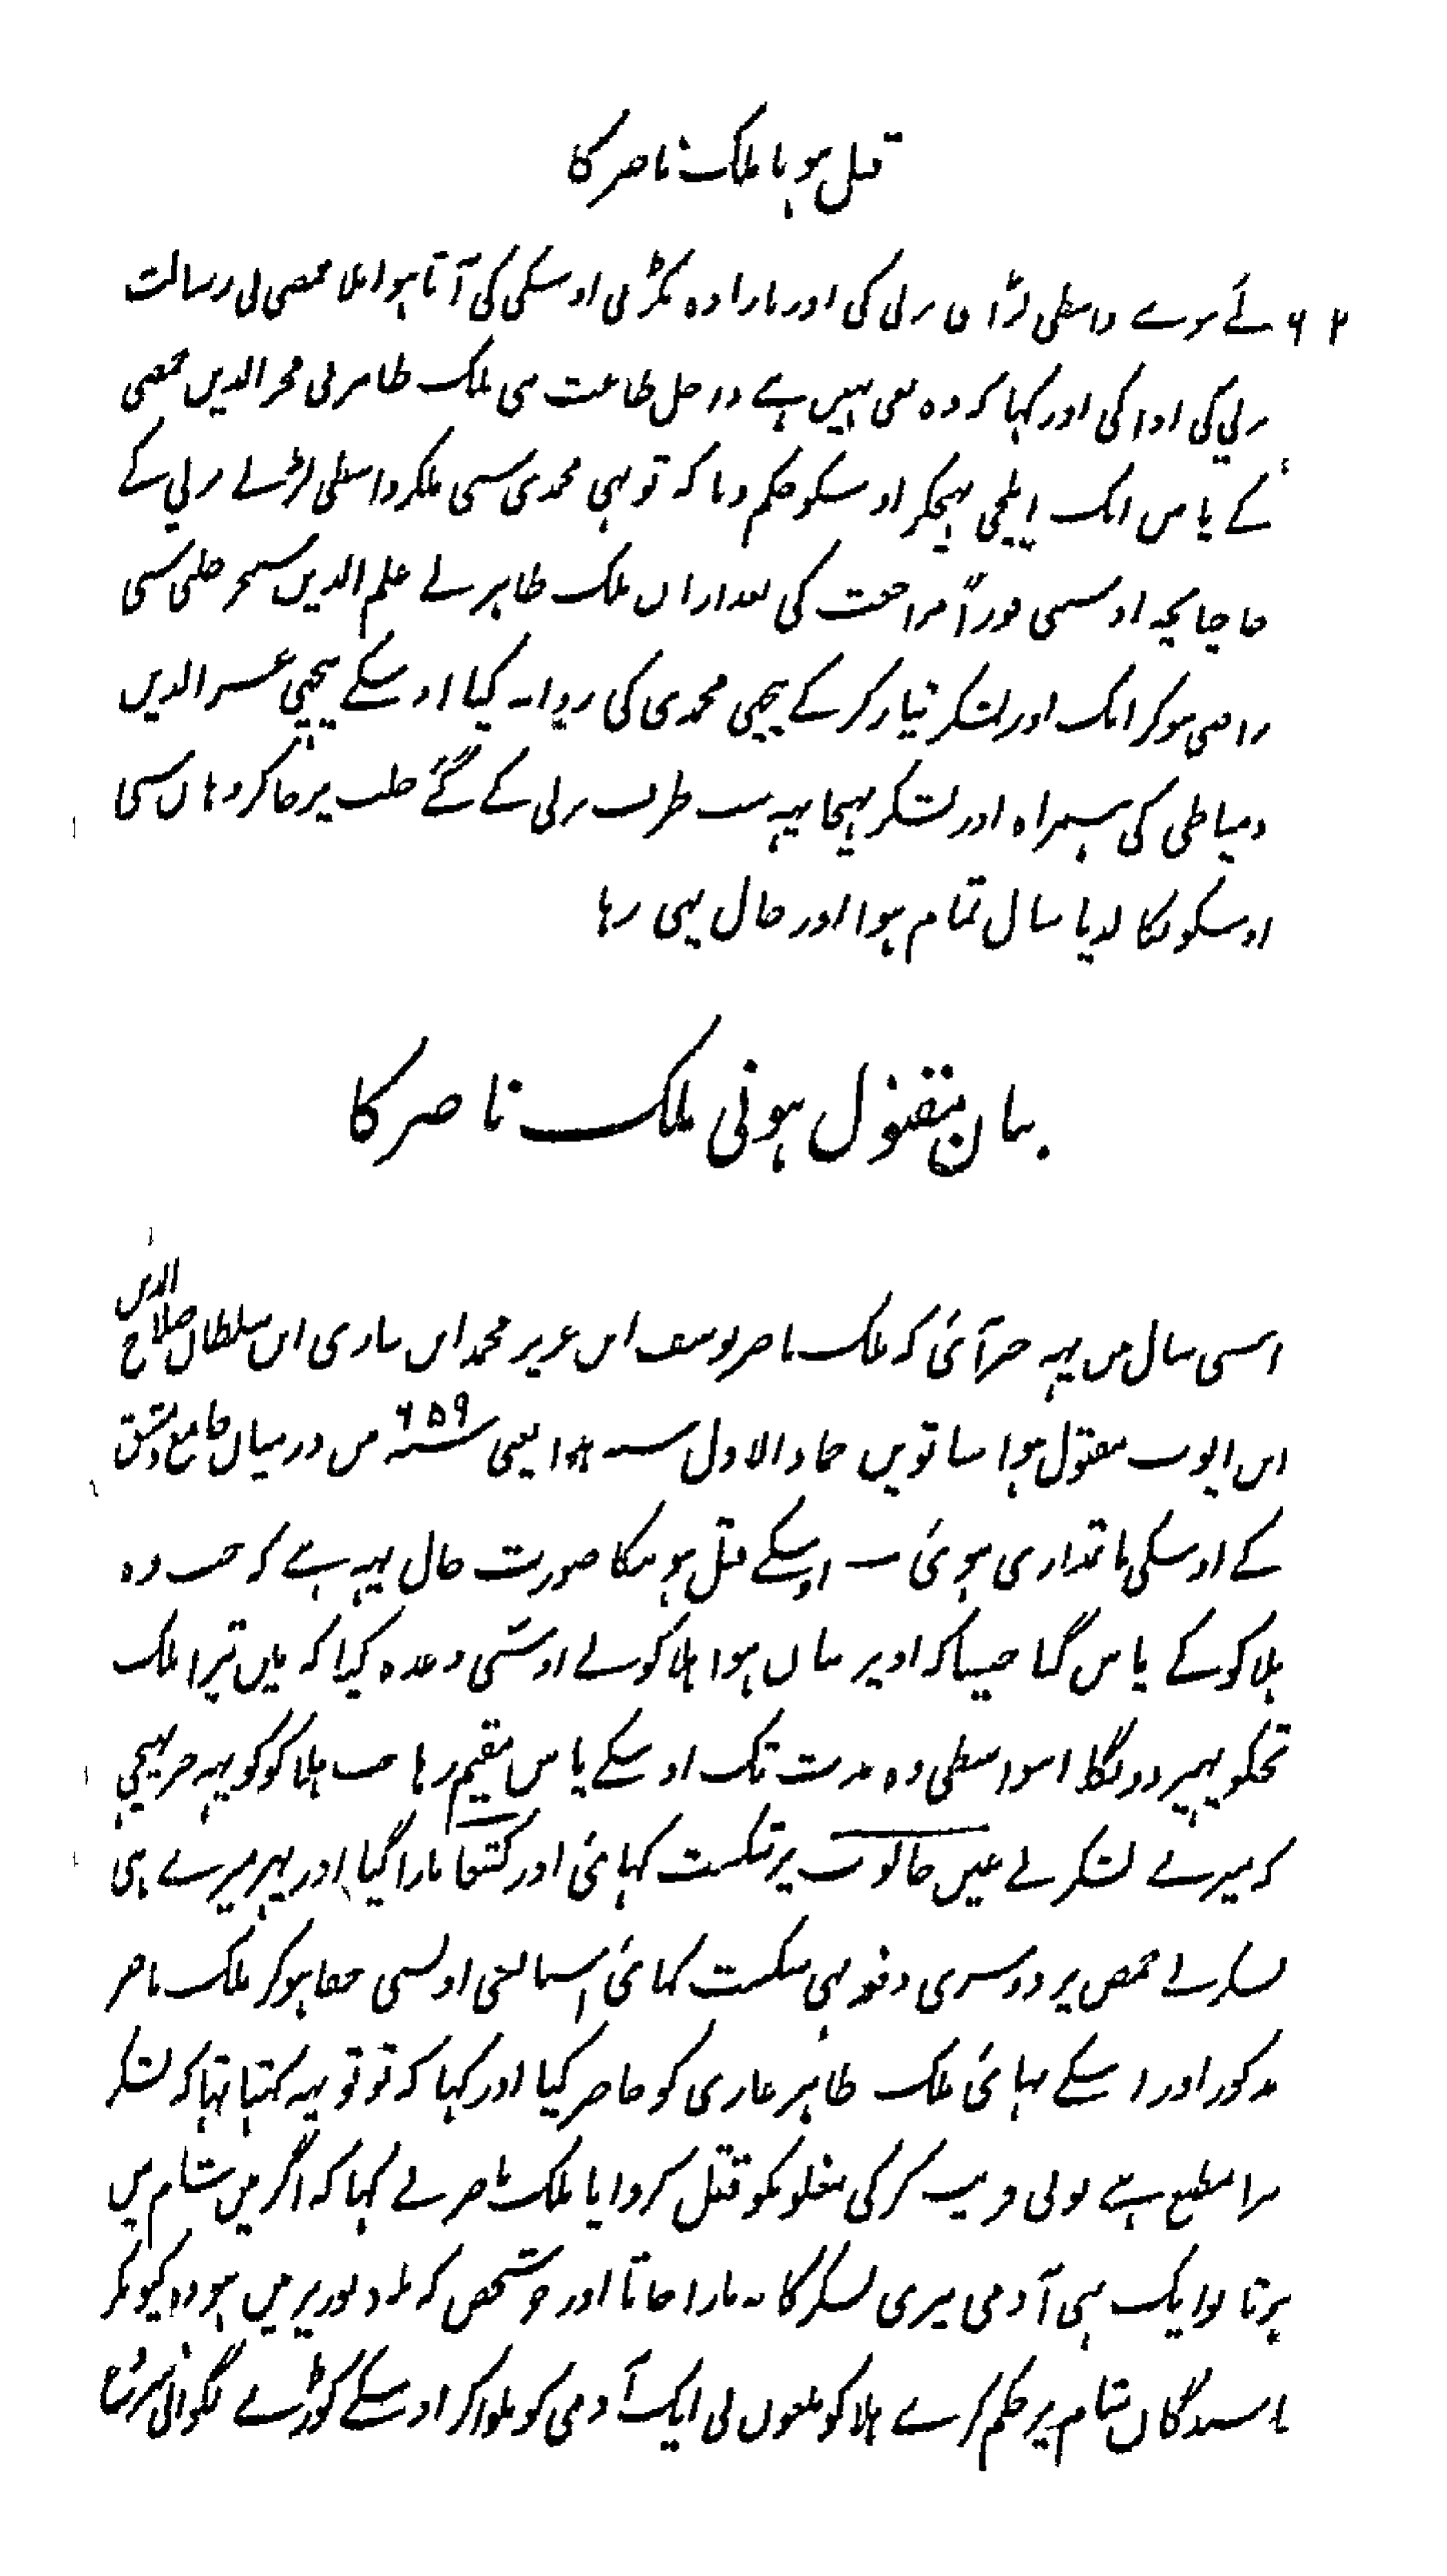 قتل ہونا ملک ناصر کا
۶۲ گئے ہوے واسطی لڑائی برلی کی اور بارادہ پکڑنی اوسکی کی آتا ہوا ملا محمدی نی رسالت
برلی کی ادا کی اور کہا کہ وہ نہیں ہے داخل طاعت می ملک ظاہر نی فخر الدین حمصی
کے پاس ایک ایلچی بہیجکر اوسکو حکم دیا کہ تو بہی محمدی سی ملکر واسطی لڑنے برلی کے
جا چنانچہ اوسنی فوراً مراجعت کی بعد ازاں ملک ظاہر نے علم الدین سنجر حلبی سی
راضی ہوکر ایک اور لشکر تیار کر کے پیچھی محمدی کی روانہ کیا اوسکے پیچھی عز الدین
دمیاطی کی ہمراہ اور لشکر بہیجا یہہ سب طرف برلی کے گئے حلب پر جاکر وہاں سی
اوسکو نکالدیا سال تمام ہوا اور حال یہی رہا
بیان مقتول ہونی ملک ناصر کا
اسی سال میں یہہ خبر آئی کہ ملک ناصر یوسف ابن عزیز محمد ابن غازی ابن سلطان صلاح الدین
ابن ایوب مقتول ہوا ساتویں جماد الاول سنہ یعنی سنہ ۶۵۹ میں درمیان جامع دمشق
کے اوسکی ماتمداری ہوئی اوسکے قتل ہونیکا صورت حال یہہ ہے کہ جب وہ
ہلاکو کے پاس گیا جیسا کہ اوپر بیان ہوا ہلاکو نے اوسسی وعدہ کیا کہ میں تیرا ملک
تجکو پہیر دونگا اسواسطی وہ مدت تک اوسکے پاس مقیم رہا جب ہلاکو کو یہہ خبر پہنچی
کہ میرے لشکر نے عین جالوت پر شکست کہائی اور کتبغا مارا گیا اور پہر میرے ہی
لشکر نے حمص پر دوسری دفعہ بہی شکست کہائی اسبات سی خفا ہوکر ملک ناصر
مذکور اور اسکے بہائی ملک ظاہر غازی کو حاضر کیا اور کہا کہ تو تو یہہ کہتا تہا کہ لشکر
میرا مطیع ہے تونی فریب کر کی مغلونکو قتل کروایا ملک ناصر نے کہا کہ اگر میں شام میں
ہوتا تو ایک بہی آدمی میری لشکر کا نہ مارا جاتا اور جو شخص کہ بلاد توریز میں ہووے کیونکر
باشندگان شام پر حکم کرے ہلاکو ملعون نی ایک آدمی کو بلواکر اوسکے کوڑے لگوانی شروع